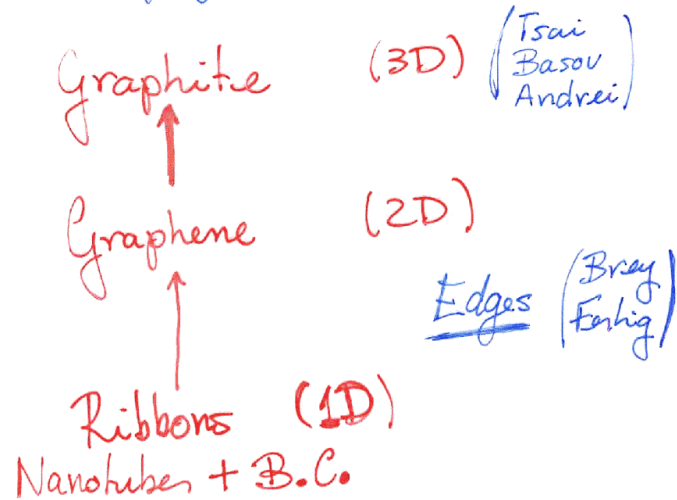 Graphite (3D) (Tsai
Basov
Andrei)
Graphene (2D)
Edges (Brey
Fertig)
Ribbons (1D)
Nanotubes + B.C.